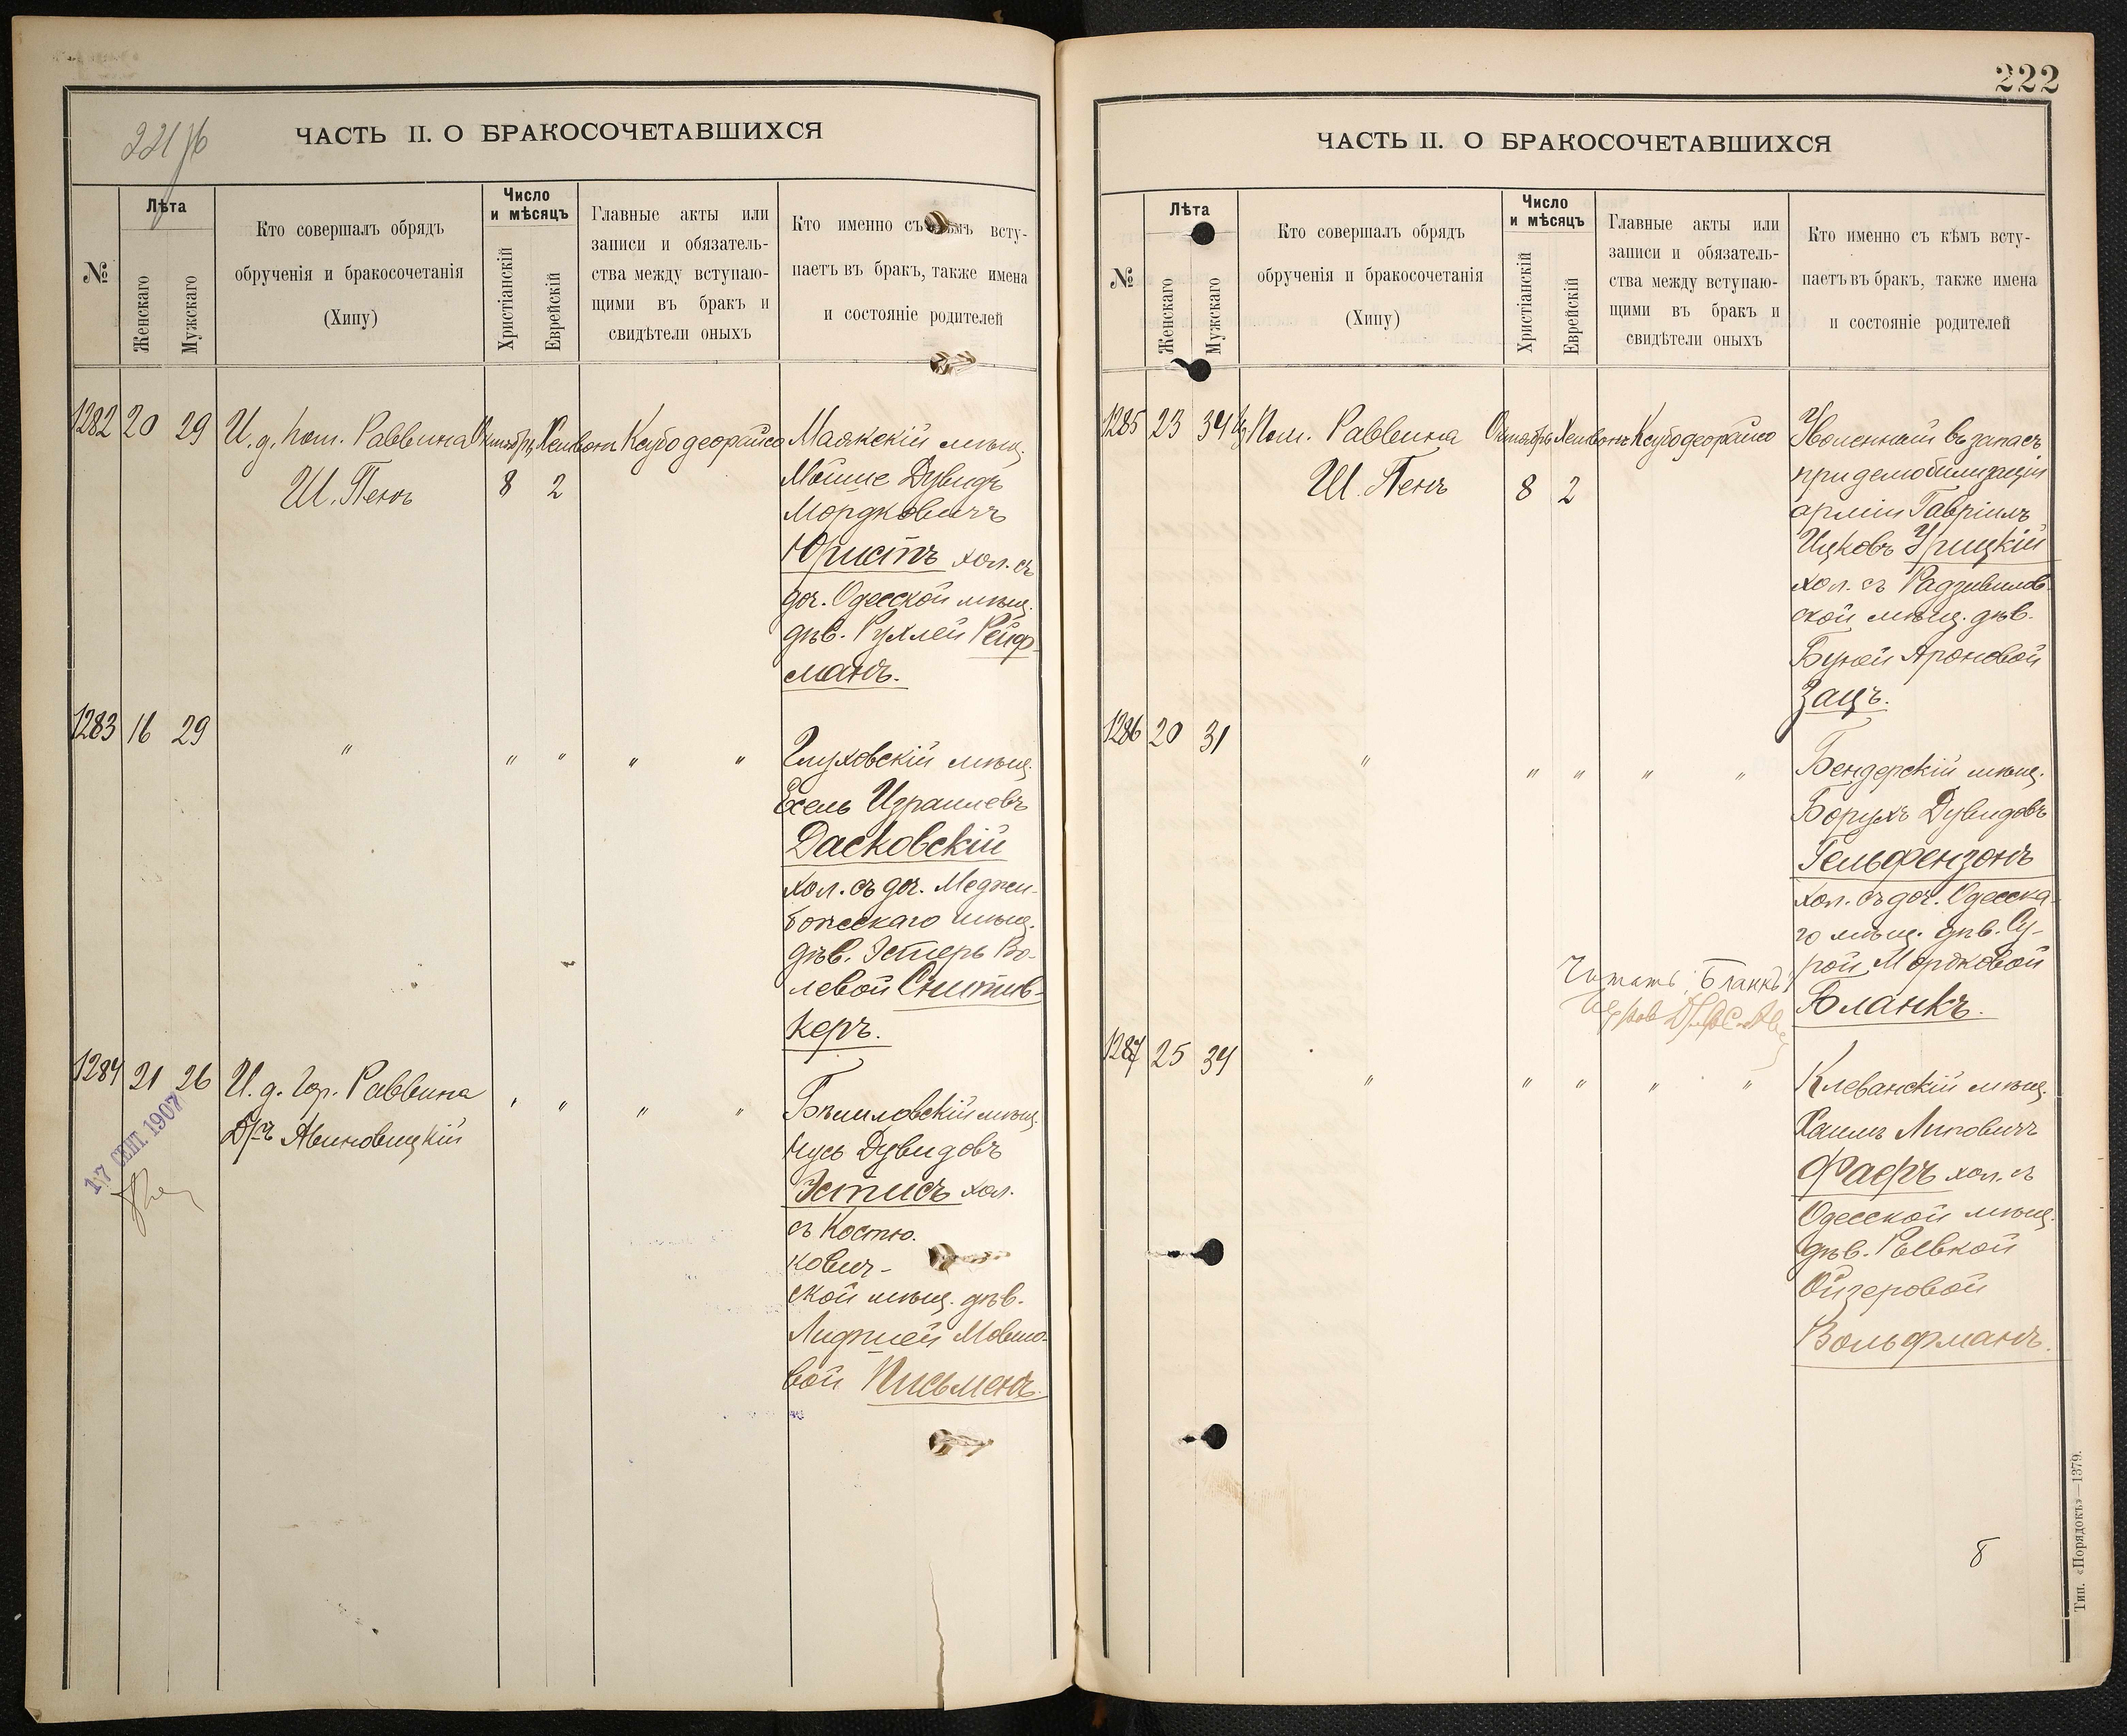 221 об
ЧАСТЬ II. О БРАКОСОЧЕТАВШИХСЯ
№
Лѣта
Женскаго
Мужскаго
Кто совершалъ обрядъ
обрученія и бракосочетанія
(Хипу)
Число
и мѣсяцъ
Христіанскій
Еврейскій
Главные акты или
записи и обязатель-
ства между вступаю-
щими въ бракъ и
свидѣтели оныхъ
Кто именно съ кѣмъ всту-
паетъ въ бракъ, также имена
и состояніе родителей
1282 20 29 И. д. пом. Раввина Октябрь Хешвонъ
Ш. Пенъ 8 2
Маякскій мѣщ.
Мойше Дувидъ
Мордковичъ
Юристъ хол. съ
доч. Одесской мѣщ.
дѣв. Рухлей Рейф-
манъ.
1283 16 29 " " " " "
Глуховскій мѣщ.
Ехель Израилевъ
Дасковскій
хол. съ доч. Меджи-
божскаго мѣщ.
дѣв. Эстеръ Во-
левой Снитив-
керъ.
1284 21 26 И. д. Гор. Раввина " " " "
Д-ръ Авиновицкій
17 СЕНТ. 1907
мѣщ.
Нусь Дувидовъ
Эстисъ хол.
съ Костю-
кович-
ской мѣщ. дѣв.
Мовшо-
вой Письменъ.
222
ЧАСТЬ II. О БРАКОСОЧЕТАВШИХСЯ
№
Лѣта
Женскаго
Мужскаго
Кто совершалъ обрядъ
обрученія и бракосочетанія
(Хипу)
Число
и мѣсяцъ
Христіанскій
Еврейскій
Главные акты или
записи и обязатель-
ства между вступаю-
щими въ бракъ и
свидѣтели оныхъ
Кто именно съ кѣмъ всту-
паетъ въ бракъ, также имена
и состояніе родителей
1285 23 34 Пом. Раввина Октябрь Хешвонъ
Ш. Пенъ 8 2
Уволенный въ запасъ
при демобилизаціи
арміи Гавріилъ
Ицковъ Урицкій
хол. съ Радзивилов-
ской мѣщ. дѣв.
Буней Ароновой
Зацъ.
1286 20 31 " " " " "
Бендерскій мѣщ.
Борухъ Дувидовъ
Гельфензонъ
хол. съ доч. Одесска-
го мѣщ. дѣв. Су-
рой Мордковой
Бланкъ.
Читать: Бланкъ
1287 25 34 " " " " "
Клеванскій мѣщ.
Хаимъ Липовичъ
Фаеръ хол. съ
Одесской мѣщ.
дѣв. Ривкой
Ойзеровой
Вольфманъ.
8
Тип. «Порядокъ»—1379.